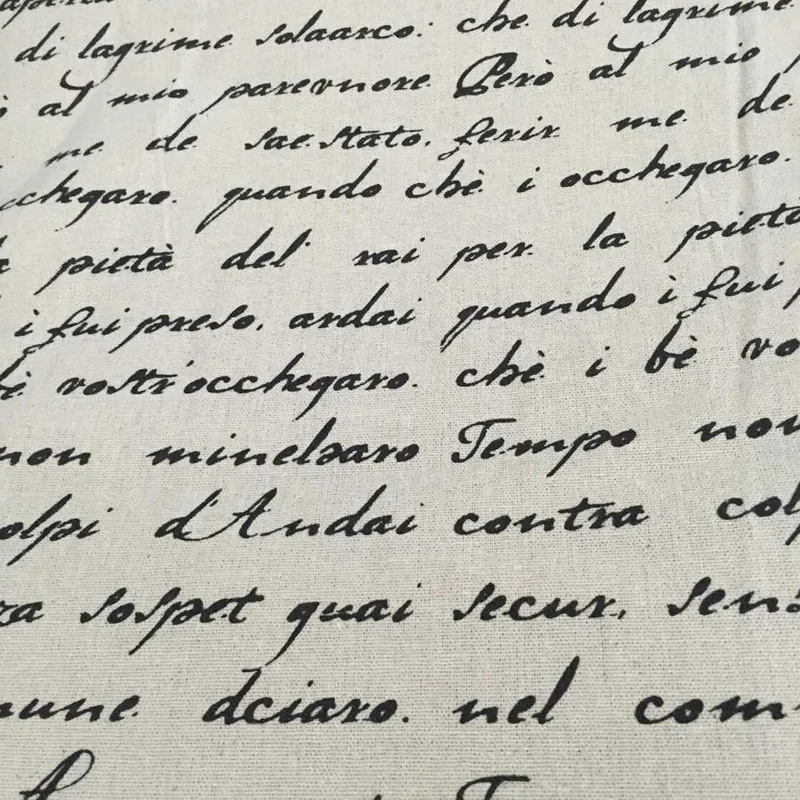 di lagrime solaarco: che di lagrime
al mio parevnore Però al mio
me de sae stato. ferir me de
chegaro. quando chè i occhegaro.
pietà del' rai per la pietà
i fui preso. ardai quando i fui
vostr'occhegaro. chè i bè vo
non minelsaro Tempo non
olpi d'Andai contra colp
za sospet guai secur, senz
mune dciaro. nel com